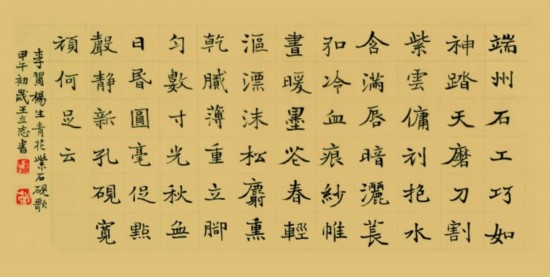 端州石工巧如
神踏天磨刀割
紫雲傭刓抱水
含滿唇暗灑萇
弘冷血痕紗帷
晝暖墨花春輕
漚漂沫松麝熏
乾膩薄重立腳
勻數寸光秋無
日昏圓毫促點
聲靜新孔硯寬
頑何足云
李賀楊生青花紫石硯歌
甲午初歲王立志書